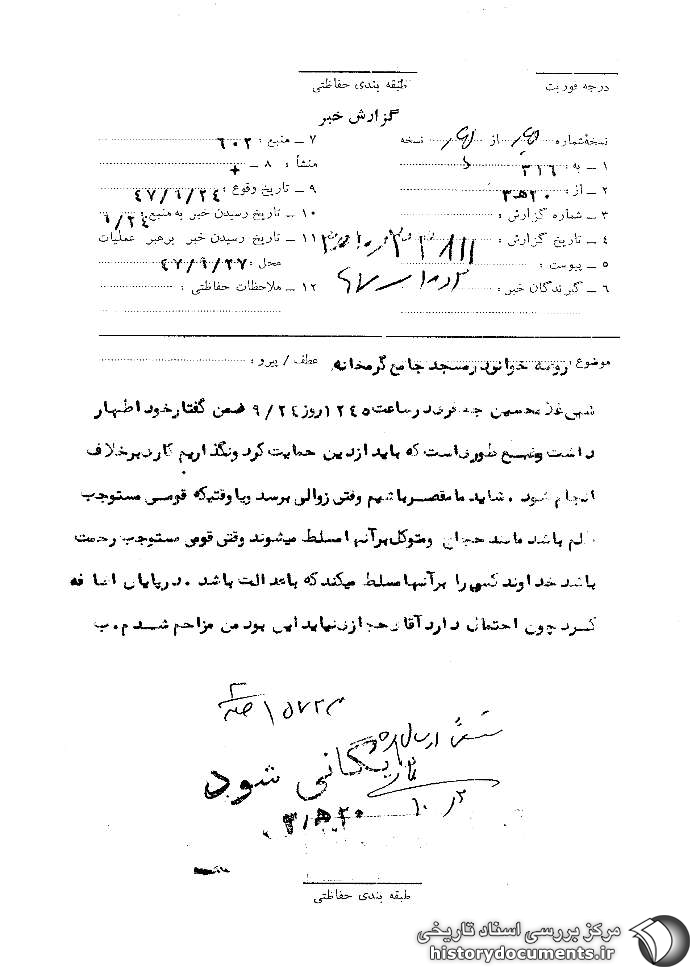 درجه فوریت
طبقه بندی حفاظتی
گزارش خبر
نسخه شماره از نسخه
۱ ـ به : ۳۱۶
۲ ـ از : ۲۰ ه ۳
۳ ـ شماره گزارش :
۴ ـ تاریخ گزارش :
۵ ـ پیوست :
۶ ـ گیرندگان خبر :
۷ ـ منبع : ۶۰۲
۸ ـ منشأ : +
۹ ـ تاریخ وقوع : ۴۷/۹/۲۴
۱۰ ـ تاریخ رسیدن خبر به منبع : ۹/۲۴
۱۱ ـ تاریخ رسیدن خبر برهبر عملیات
محل : ۴۷/۹/۲۷
۱۲ ـ ملاحظات حفاظتی :
موضوع : روضه خوانی در مسجد جامع گرمخانه
عطف / پیرو :
شیخ غلامحسین جعفری در ساعت ۱۲۴۵ روز ۹/۲۴ ضمن گفتار خود اظهار
داشت وضع طوری است که باید از دین حمایت کرد و نگذاریم کاری برخلاف
انجام شود . شاید ما مقصر باشیم وقتی زوالی برسد و یا وقتیکه قومی مستوجب
ظلم باشد مانند حجاج و متوکل بر آنها مسلط میشوند وقتی قومی مستوجب رحمت
باشد خداوند کسی را بر آنها مسلط میکند که با عدالت باشد . در پایان اضافه
کرد چون احتمال دارد آقای حجازی نیاید این بود من مزاحم شدم . ب
بایگانی شود
۲۰ ه ۳
طبقه بندی حفاظتی
مرکز بررسی اسناد تاریخی
historydocuments.ir